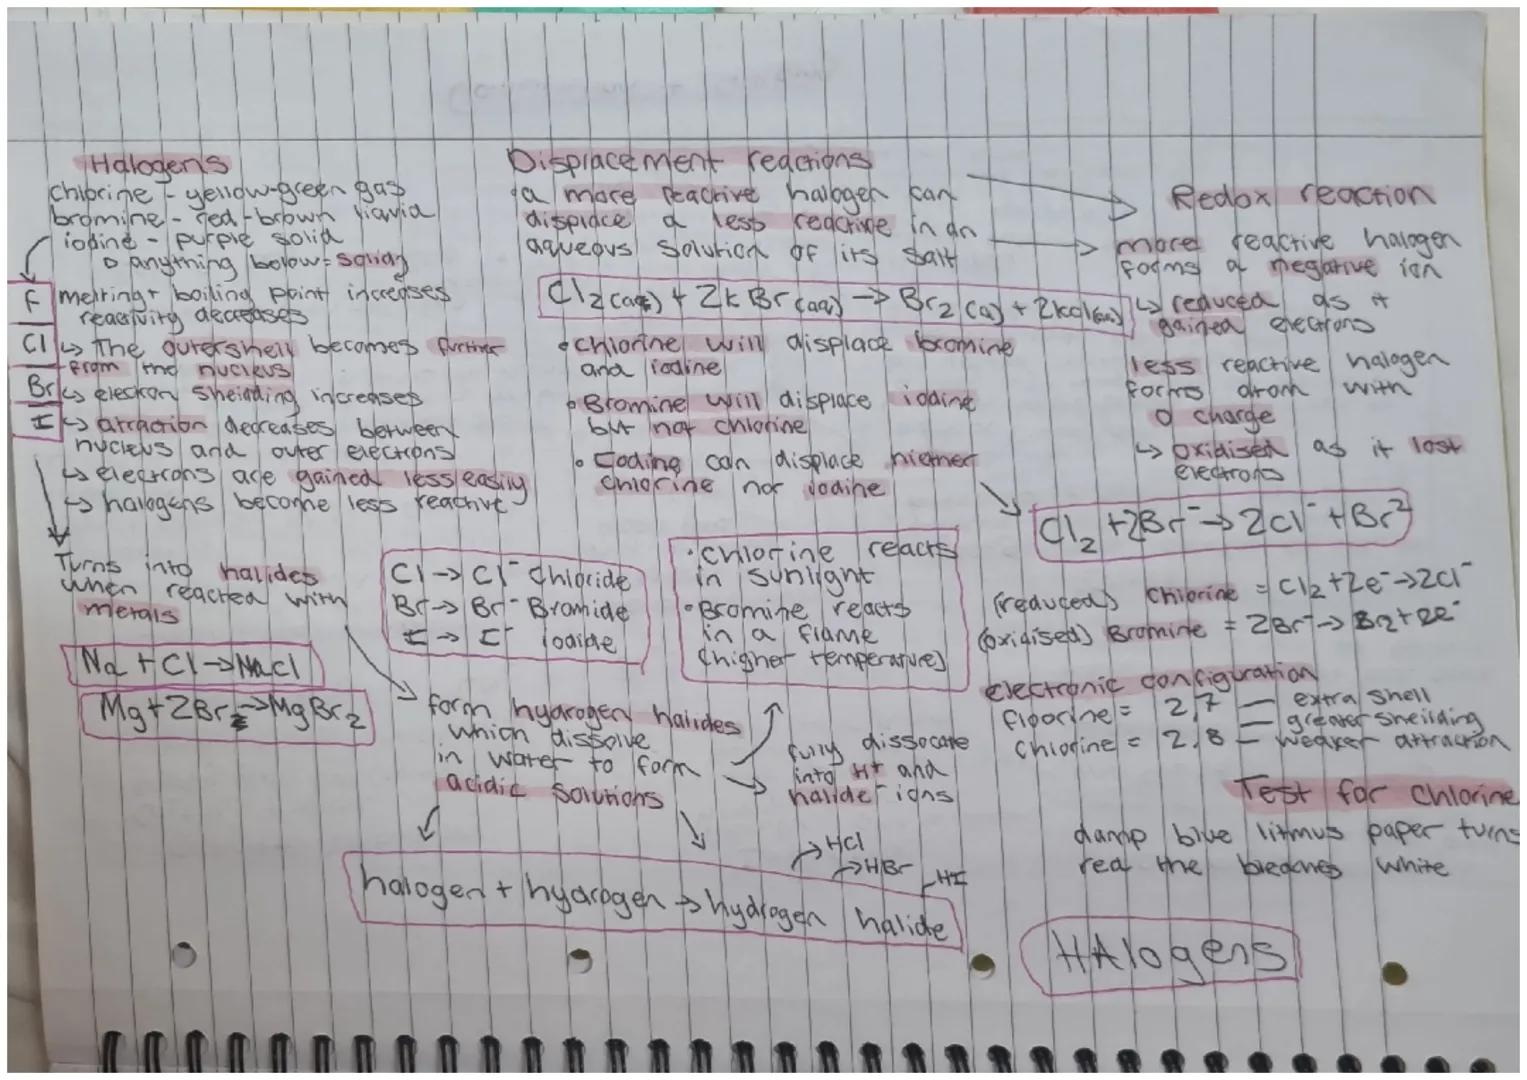 Halogens
chlorine - yellow-green gas
bromine - red-brown liquid
iodine - purple solid
anything below = solid
F
Cl
Br
I
melting + boiling point increases
reactivity decreases
↳ The outershell becomes further
from the nucleus
↳ electron sheilding increases
↳ attraction decreases between
nucleus and outer electrons
↳ electrons are gained less easily
↳ halogens become less reactive
Turns into halides
when reacted with
metals
Na + Cl → NaCl
Mg + 2Br₂ → MgBr₂
Cl → Cl⁻ Chloride
Br → Br⁻ Bromide
I → I⁻ iodide
form hydrogen halides
which dissolve
in water to form
acidic solutions
Displacement reactions
a more reactive halogen can
displace a less reactive in an
aqueous solution of its salt
Cl₂(aq) + 2KBr(aq) → Br₂(a) + 2KCl(aq)
• chlorine will displace bromine
and iodine
• Bromine will displace iodine
but not chlorine
• Iodine can displace niether
chlorine nor iodine
• chlorine reacts
in sunlight
• Bromine reacts
in a flame
(higher temperature)
fully dissocate
into H+ and
halide⁻ ions
→ HCl
→ HBr
HI
halogen + hydrogen → hydrogen halide
Redox reaction
more reactive halogen
forms a negative ion
↳ reduced as it
gained electrons
less reactive halogen
forms atom with
0 charge
↳ oxidised as it lost
electrons
Cl₂ + 2Br⁻ → 2Cl⁻ + Br²
(reduced) Chlorine = Cl₂ + 2e⁻ → 2Cl⁻
(oxidised) Bromine = 2Br⁻ → Br₂ + 2e⁻
electronic configuration
floorine = 2,7 — extra shell
— greater sheilding
Chlorine = 2,8 — weaker attraction
Test for Chlorine
damp blue litmus paper turns
red the bleaches white
HAlogens